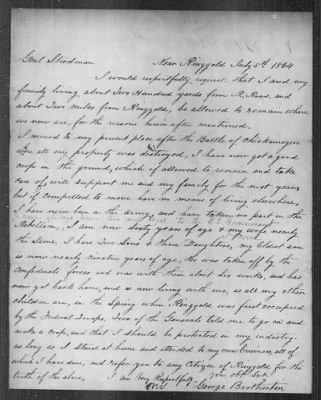 Genl Steedman Near Ringgold July 5th 1864
I would respectfully request that I and my
family living about Two Hundred yards from R Road and
about Two miles from Ringgold, be allowed to remain where
we now are, for the reasons herein after mentioned,
I moved to my present place after the Battle of Chickamauga
where all my property was destroyed, I have now got a good
crop in the ground, which if allowed to remain and take
care of, will support me and my family for the next year,
but if compelled to move have no means of living elsewhere
I have never been in the army, and have taken no part in the
Rebellion, I am now Sixty years of age & my wife nearly
the Same, I have Two Sons & Three Daughters, My Eldest son
is now nearly nineteen years of age, He was taken off by the
Confederate forces and was with them about Six weeks, and has
now got back home, and is now living with me, as all my other
children are, in the Spring when Ringgold was first occupied
by the Federal Troops, Two of the Generals told me to go on and
make a crop, and that I should be protected in my industry.
as long as I staid at home and attended to my own business, all of
which I have done, and refer you to any Citizen of Ringgold for the
truth of the above, I am Very Respectfully your Obt Svt
George Brotherton